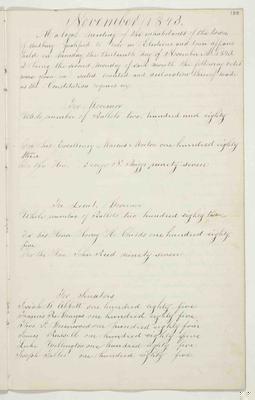 199
November 1843.
At a legal meeting of the inhabitants of the town
of Ashby qualified to vote in Elections and town affairs
held on Monday the thirteenth day of November A.D. 1843
it being the second monday of said month the following votes
were given in sorted counted and declaration thereof made
as the Constitution requires viz
For Governor
Whole number of Ballots two hundred and eighty
For his Excellency Marcus Morton one hundred eighty
three
For the Hon. George N. Briggs ninety seven
For Lieut. Governor
Whole number of Ballots two hundred eighty two
For his Honor Henry H. Childs one hundred eighty
five
For the Hon John Reed ninety seven
For Senators
Josiah G. Abbott one hundred eighty five
Francis R. one hundred eighty five
one hundred eighty four
James Russell one hundred eighty five
Luke Wellington one hundred eighty five
Joseph one hundred eighty five